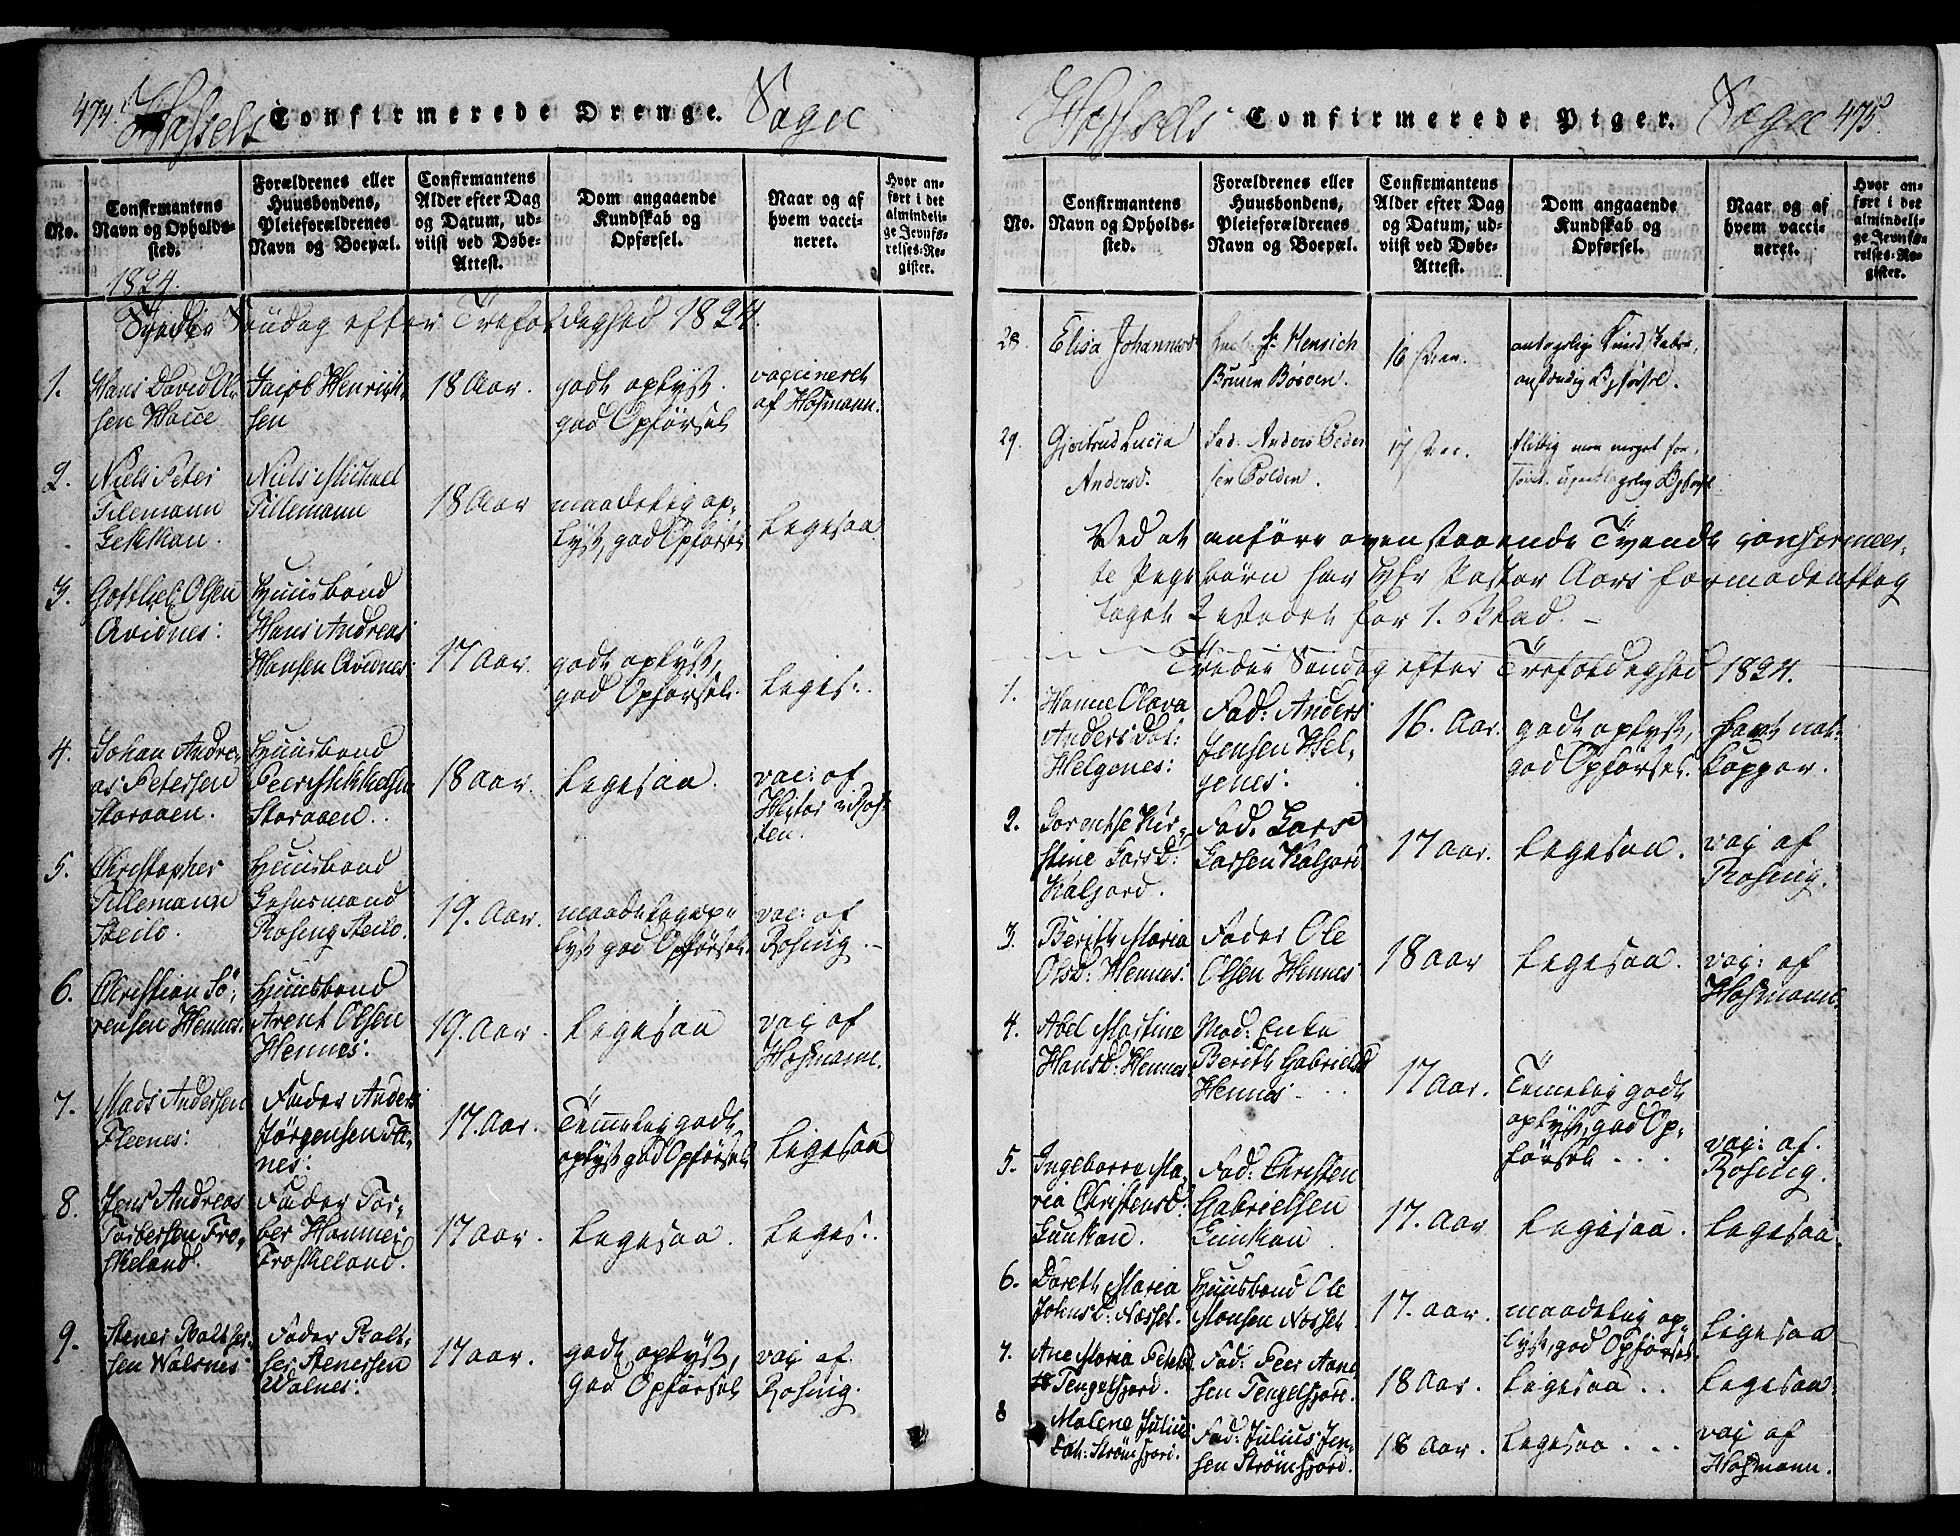 474
Hassels Confirmerede Drenge. Sogn
No.
Confirmantens
Navn og Opholds-
sted.
Forældrenes eller
Huusbondens,
Pleieforældrenes
Navn og Boepæl.
Confirmantens
Alder efter Dag
og Datum, ud-
viist ved Døbe-
Attest.
Dom angaaende
Kundskab og
Opførsel.
Naar og af
hvem vacci-
neret.
Hvor an-
ført i det
almindeli-
ge Jevnfø-
relses-Re-
gister.
1824.
Tredie Søndag efter Trefoldighed 1824.
1.
Hans David Ol-
sen
Jacob Henrik-
sen
18 Aar.
godt oplyst.
god Opførsel
vaccineret
af Hofmann.
2.
Niels Peter
Tilemann
Niels Michael
Tillemann
18 Aar
maadelig op-
lyst, god Opførsel
ligesaa
3.
Gottlieb Olsen
Qvidnes:
Huusbond
Hans Andreas
Hansen Qvidnes:
17 Aar.
godt oplyst,
god Opførsel.
liges:.
4.
Johan Andre-
as Petersen
Storaaen.
Huusbond
Peer Mikkelsen
Storaaen.
18 aar.
ligesaa.
vac: af
5.
Christopher
Tillemann
Steilo.
Huusbond
Lehnsmand
Rosing Steilo.
19. Aar.
maadelig op-
lyst god Opførsel.
vac: af
Rosing.
6.
Christian Sö-
rensen Hennes.
Huusbond
Arent Olsen
Hennes:
19. Aar.
ligesaa
vac af
Hofmann.
7.
Mads Andersen
Fleenes:
Fader Anders
Jørgensen Fle-
nes:
17. Aar.
Temmelig godt
oplyst god Opførsel
ligesaa
8.
Jens Andreas
Torbersen Fro-
skeland.
Fader Tor-
ber Hanner
Froskeland.
17 aar.
ligesaa.
liges:.
9.
Stener Baltser-
sen Walsnes
Fader Balt-
ser Stenersen
Walnes:
17 aar.
godt oplyst,
god Opførsel
vac af
Rosing.
Hassels Confirmerede Piger. Sogn 475
No.
Confirmantens
Navn og Opholds-
sted.
Forældrenes eller
Huusbondens,
Pleieforældrenes
Navn og Boepæl.
Confirmantens
Alder efter Dag
og Datum, ud-
viist ved Døbe-
Attest.
Dom angaaende
Kundskab og
Opførsel.
Naar og af
hvem vacci-
neret.
Hvor an-
ført i det
almindeli-
ge Jevnfø-
relses-Re-
gister.
28.
Elisa Johannesd
Henrich
Bruun
16 Aar.
antagelig Kundskaber,
anstændig Opførsel.
29.
Gjertrud Lucia
Andersd.
Fad: Anders Peder
sen
17 Aar.
flittig men meget for-
Opførsel
Ved at anføre ovenstaaende Tvende confirmeer-
te Pigebørn har Hr Pastor Aars formodentlig
taget 2 for 1. Blad. –
Tredie Søndag efter Trefoldighed 1824.
1.
Hanne Olava
Anders Dat:
Helgenes:
Fad: Anders
Jensen Hel-
genes:
16. Aar.
godt oplyst,
god Opførsel.
havt nat:
Kopper.
2.
Lorentse Kir-
stine Larsd:
Kaljord.
Fad. Lars
Larsen Kaljord
17 aar.
ligesaa.
vac af
Rosing.
3.
Berith Maria
Olsd: Hennes:
Fader Ole
Olsen Hennes
18 aar
ligesaa.
vac: af
Hofmann.
4.
Abel Martine
Hansd: Hennes
Mod: Enke
Berith Gabrielsd
Hennes
17 Aar.
Temelig godt
oplyst, god Op-
førsel
vac: af.
Rosing.
5.
Ingeborre Ma-
ria Christensd:
Guukan.
Fad: Christen
Gabrielsen
Guukan
17. Aar
ligesaa
ligesaa.
6.
Doreth Maria
Johnsd: Næsset.
Huusbond Ole
Monsen Næsset.
17. aar.
maadelig op-
lyst, god Opførsel.
ligesaa
7.
Ane Maria Petersd
Tengelfjord.
Fad: Peer Aane
sen Tengelfjord.
18 Aar.
ligesaa..
ligesaa.
8
Malene Julius
Dat: Strömfjord.
Fad: Julius Jen-
sen Strömfjord.
18 Aar.
ligesaa...
vac af
Hofmann.